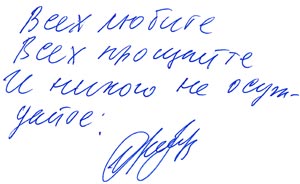 Всех любите
Всех прощайте
И никого не осуж-
дайте: